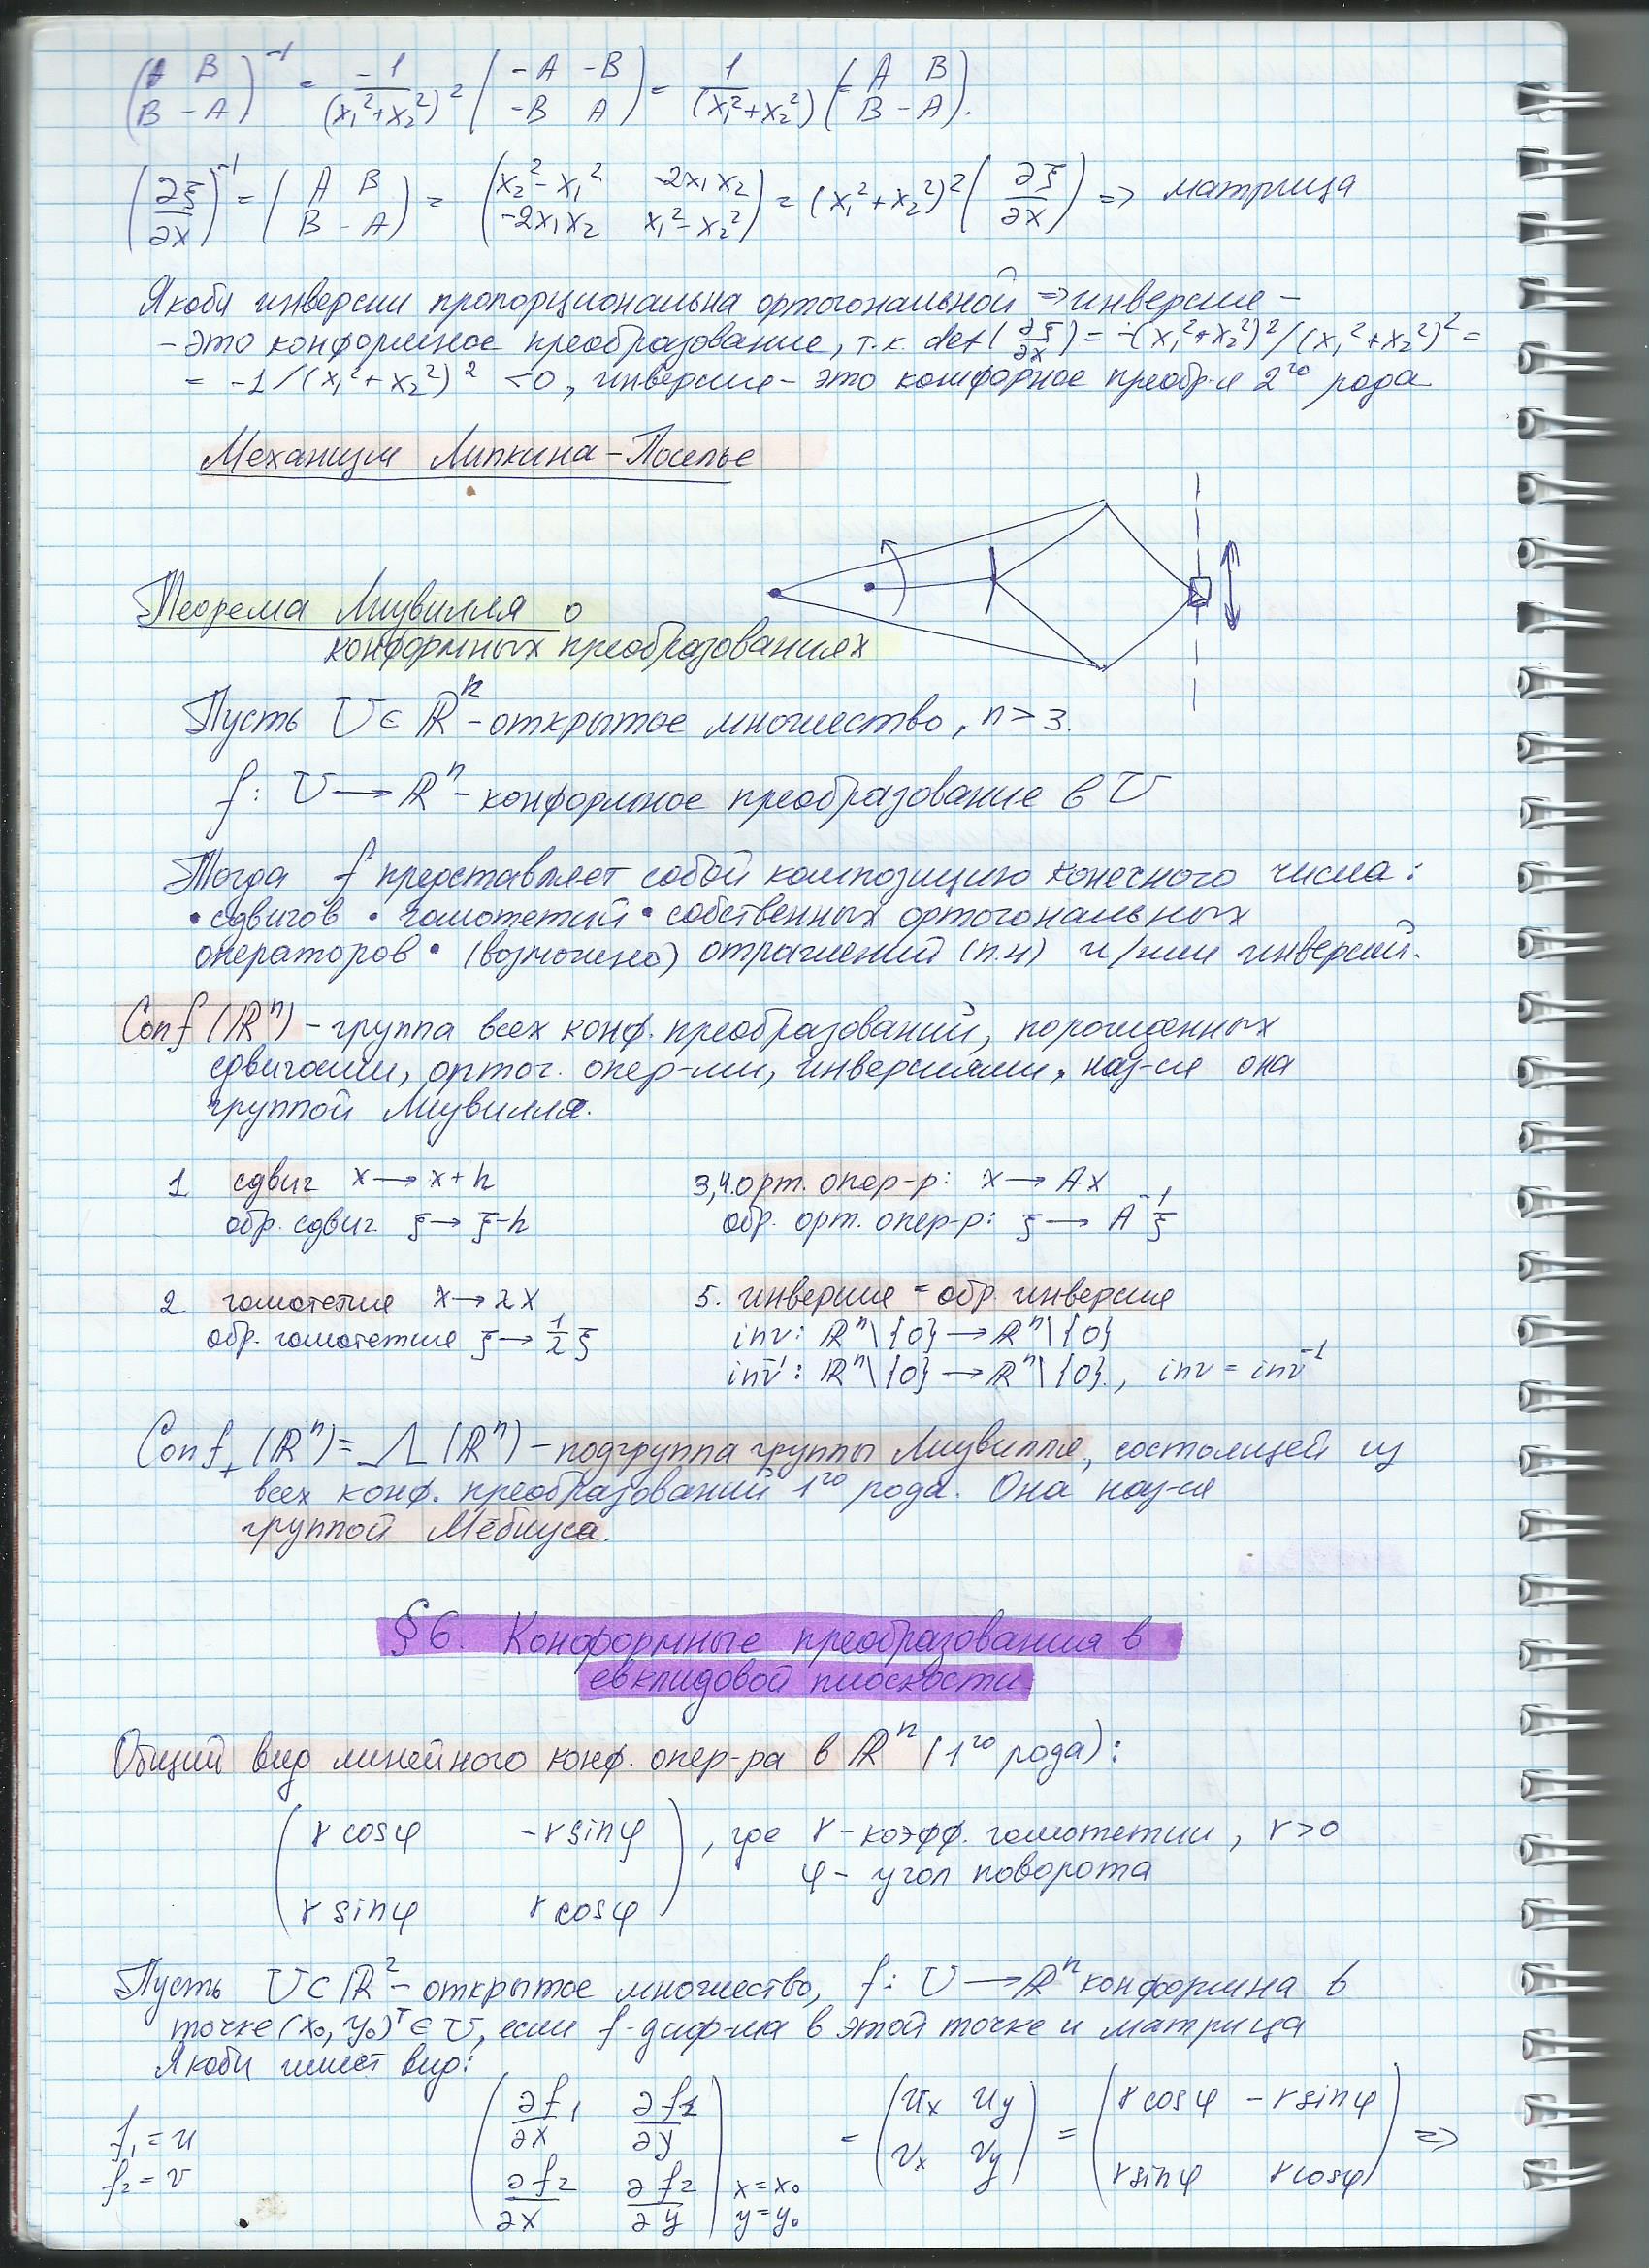 (A B; B −A)⁻¹ = −1/(x₁²+x₂²)² (−A −B; −B A) = 1/(x₁²+x₂²) (A B; B −A).
(∂ξ/∂x)⁻¹ = (A B; B −A) = (x₂²−x₁² −2x₁x₂; −2x₁x₂ x₁²−x₂²) = (x₁²+x₂²)² (∂ξ/∂x) => матрица
Якоби инверсии пропорциональна ортогональной => инверсия –
– это конформное преобразование, т.к. det(∂ξ/∂x) = −(x₁²+x₂²)²/(x₁²+x₂²)² =
= −1/(x₁²+x₂²)² <0, инверсия – это конформное преобр-е 2го рода
Механизм Липкина–Поселье
Теорема Лиувилля о
конформных преобразованиях
Пусть U ∈ ℝⁿ – открытое множество, n > 3.
f: U → ℝⁿ – конформное преобразование в U
Тогда f представляет собой композицию конечного числа:
• сдвигов • гомотетий • собственных ортогональных
операторов • (возможно) отражений (п.4) и/или инверсий.
Conf (ℝⁿ) – группа всех конф. преобразований, порожденных
сдвигами, ортог. опер-ми, инверсиями, наз-ся она
группой Лиувилля.
1 сдвиг x → x + h
обр. сдвиг ξ → ξ-h
3,4. орт. опер-р: x → Ax
обр. орт. опер-р: ξ → A⁻¹ξ
2. гомотетия x → λx
обр. гомотетия ξ → 1/λ ξ
5. инверсия = обр. инверсия
inv: ℝⁿ\{0} → ℝⁿ\{0}
inv⁻¹: ℝⁿ\{0} → ℝⁿ\{0}, inv = inv⁻¹
Conf₊ (ℝⁿ) = Λ (ℝⁿ) – подгруппа группы Лиувилля, состоящей из
всех конф. преобразований 1го рода. Она наз-ся
группой Мёбиуса.
§ 6. Конформные преобразования в
евклидовой плоскости.
Общий вид линейного конф. опер-ра в ℝⁿ (1го рода):
(r cosφ −r sinφ; r sinφ r cosφ), где r – коэфф. гомотетии, r>0
φ – угол поворота
Пусть U ⊂ ℝ² – открытое множество, f: U → ℝⁿ конформна в
точке (x₀, y₀)ᵀ ∈ U, если f – диф-ма в этой точке и матрица
Якоби имеет вид:
f₁ = u
f₂ = v
(∂f₁/∂x ∂f₁/∂y; ∂f₂/∂x ∂f₂/∂y) | x=x₀ y=y₀ = (uₓ u_y; vₓ v_y) = (r cosφ −r sinφ; r sinφ r cosφ) =>